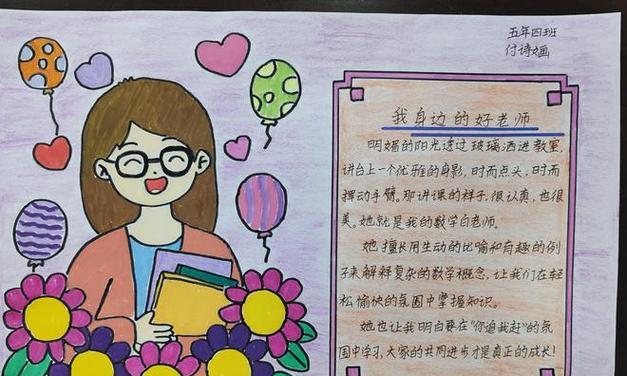 五年四班
付诗婳
我身边的好老师
明媚的阳光透过玻璃洒进教室,
讲台上一个优雅的身影,时而点头,时而
摆动手臂。那讲课的样子,很认真,也很
美。她就是我的数学白老师。
她擅长用生动的比喻和有趣的例
子来解释复杂的数学概念,让我们在轻
松愉快的氛围中掌握知识。
她也让我明白要在"你追我赶"的氛
围中学习,大家的共同进步才是真正的成长!